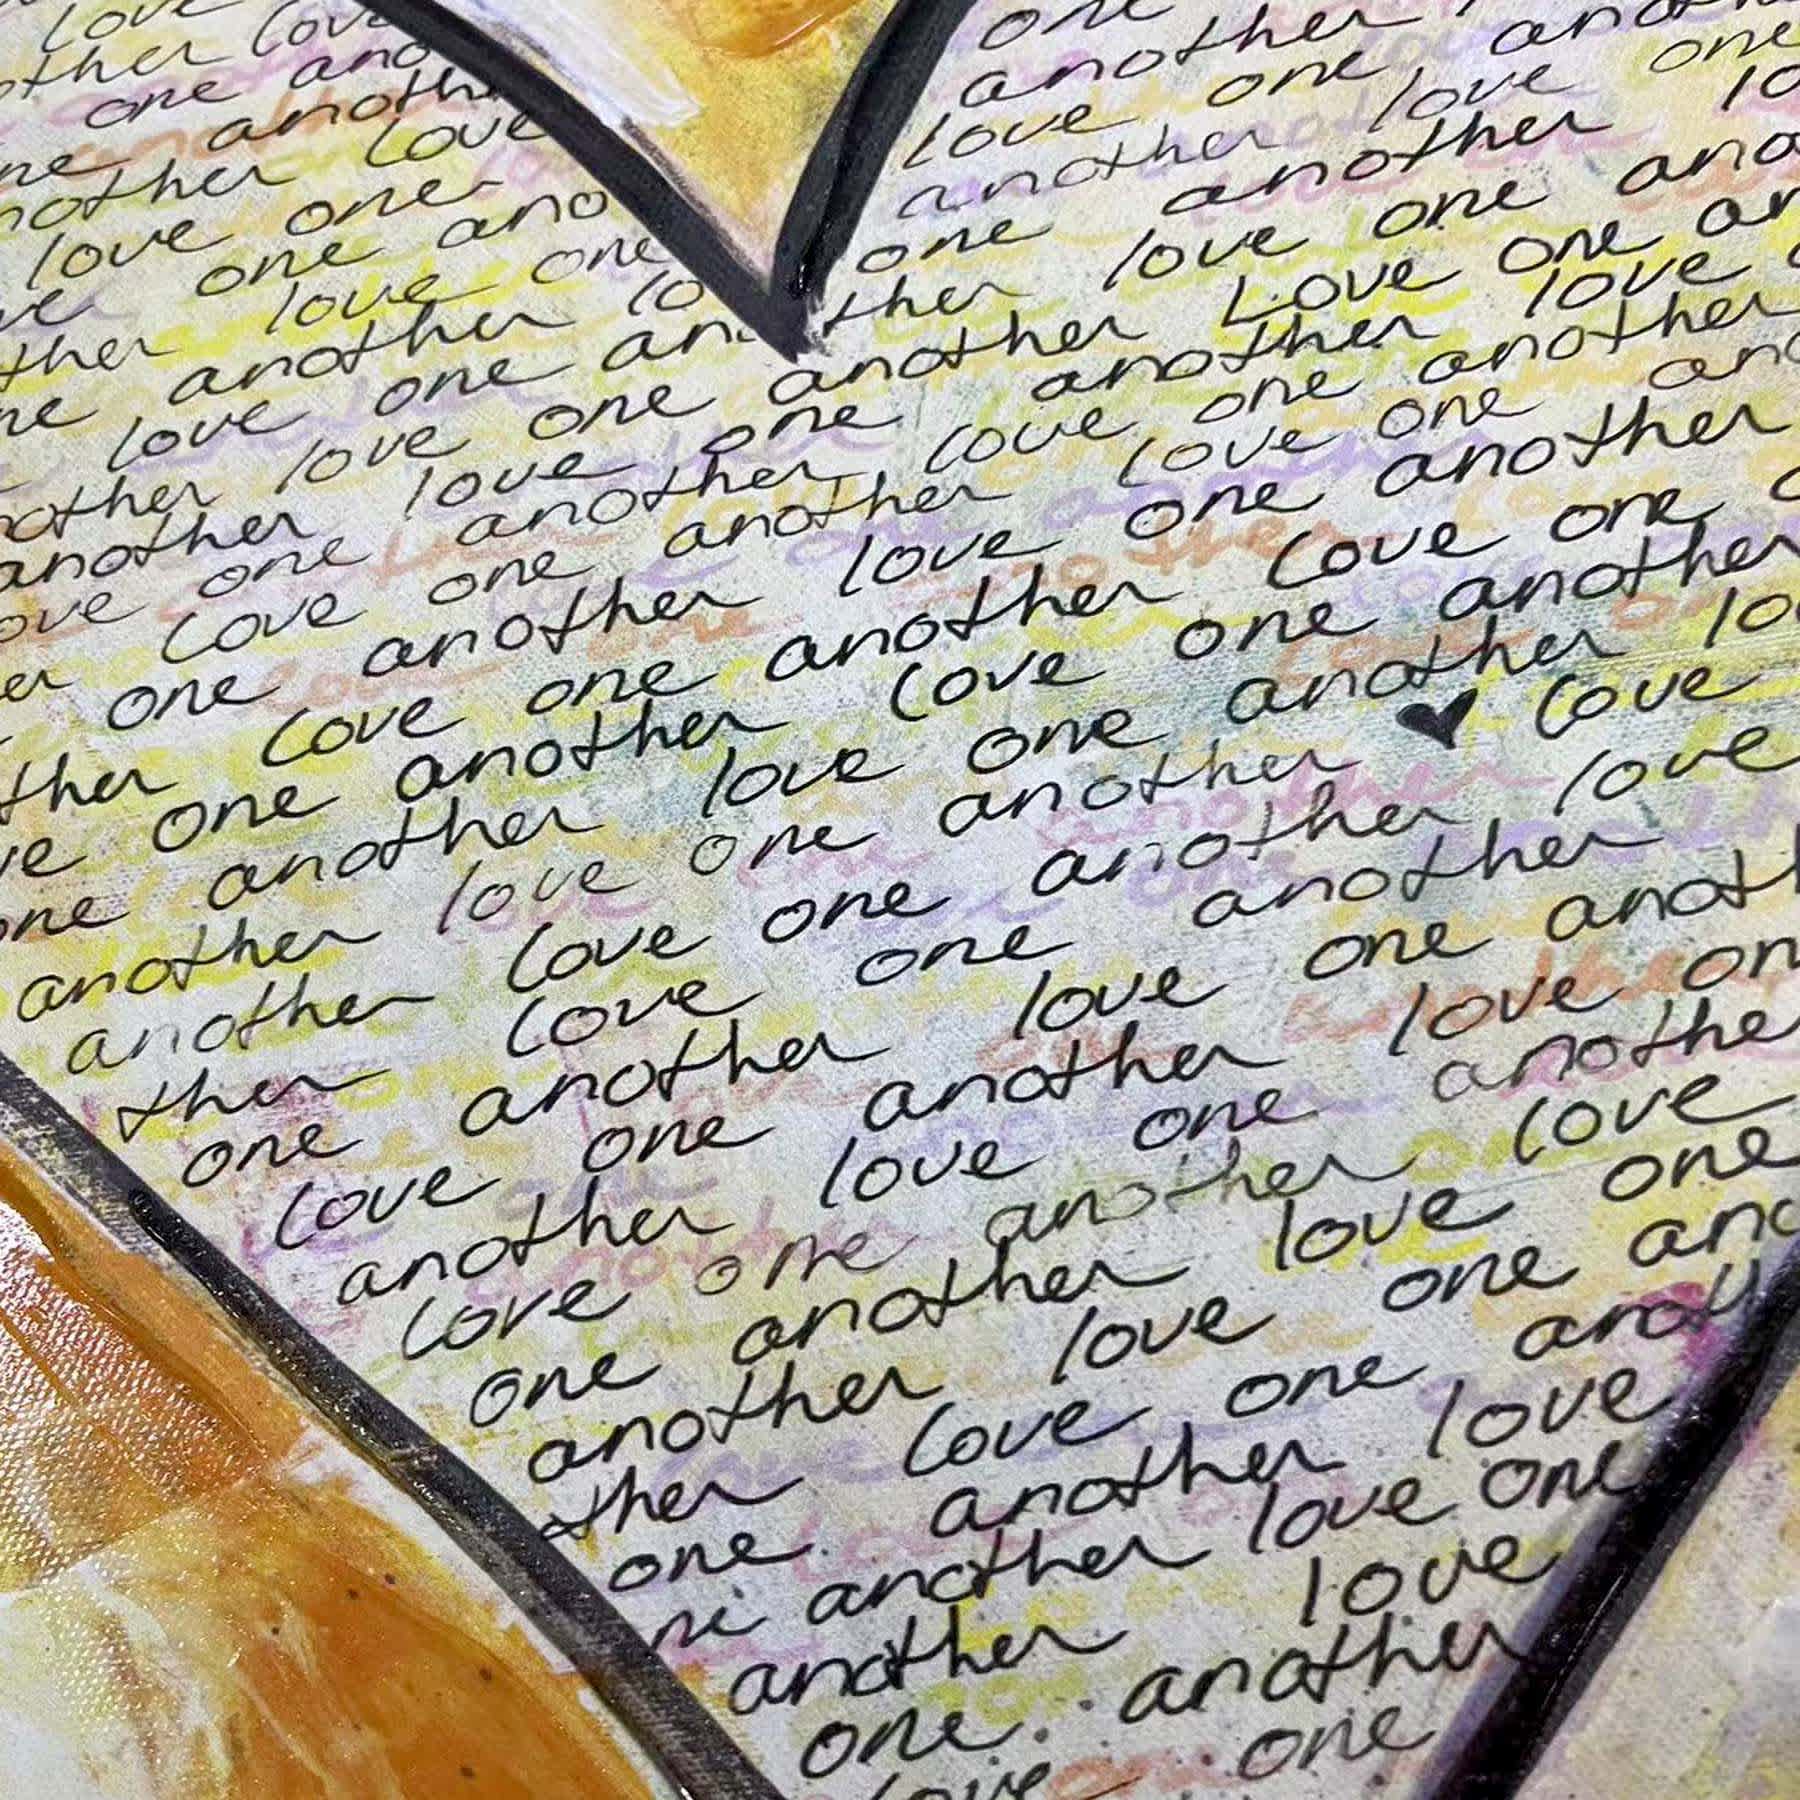 love
other love one
one ano another
one another love one ano
nother love another love one
love one another lo
one ano one another
love one love one ano
ther another lo ther Love one an
love one ano another love
nother love one another another
another love one love one another
ove one another love one ano
love one another one another
er one another love love one
ther love one another one another
ve one another love another lo
one another love one ♥ love
another love one another love
another love one another another
ther love one one anoth
one another love love on
love one another another
another love one love
love one another one
one another love ano
another love one anoth
ther love one love
one another one
ne another love
another love
one another
love one